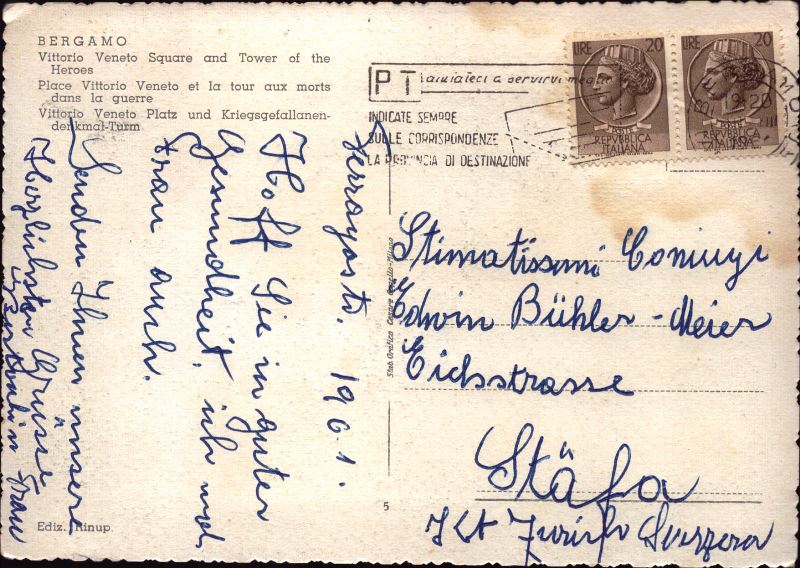 BERGAMO
Vittorio Veneto Square and Tower of the
Heroes
Place Vittorio Veneto et la tour aux morts
dans la guerre
Vittorio Veneto Platz und Kriegsgefallanen-
denkmal-Turm
PT a servirvi meglio
INDICATE SEMPRE
SULLE CORRISPONDENZE
LA PROVINCIA DI DESTINAZIONE
LIRE 20
REPVBBLICA
ITALIANA
LIRE 20
REPVBBLICA
ITALIANA
19-20
Ferragosto. 1961.
Hoff Sie in guter
Gesundheit, ich und
Frau auch.
Senden Ihnen unsere
Herzlichsten Grüsse
Frau
Stimatissimi Coniugi
Edwin Bühler-Meier
Eichstrasse
Stäfa
Kt Zurich Svizzera
Stab. Grafico Cesare Milano
5
Ediz. Rinup.